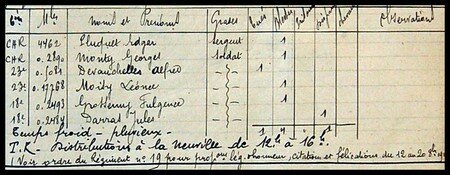 Cies Mle Noms et Prénoms Grades Tués Blessés Disparus Observations
CHR 4462 Lluquet Edgar Sergent 1
CHR 0.2890 Monty Georges Soldat 1
23e 0.5081 Devauchelles Alfred -"- 1
23e 0.17768 Moity Léonce -"- 1
18e 0.2493 Grosterny Fulgence -"- 1
18e 0.2484 Darras Jules -"- 1
Temps froid - pluvieux - 1 4 1
T.R. - Distributions à la Neuville de 12h à 16h.
(Voir ordre du Régiment n° 19 pour propons lég. d'honneur, citation et félicitations du 12 au 20